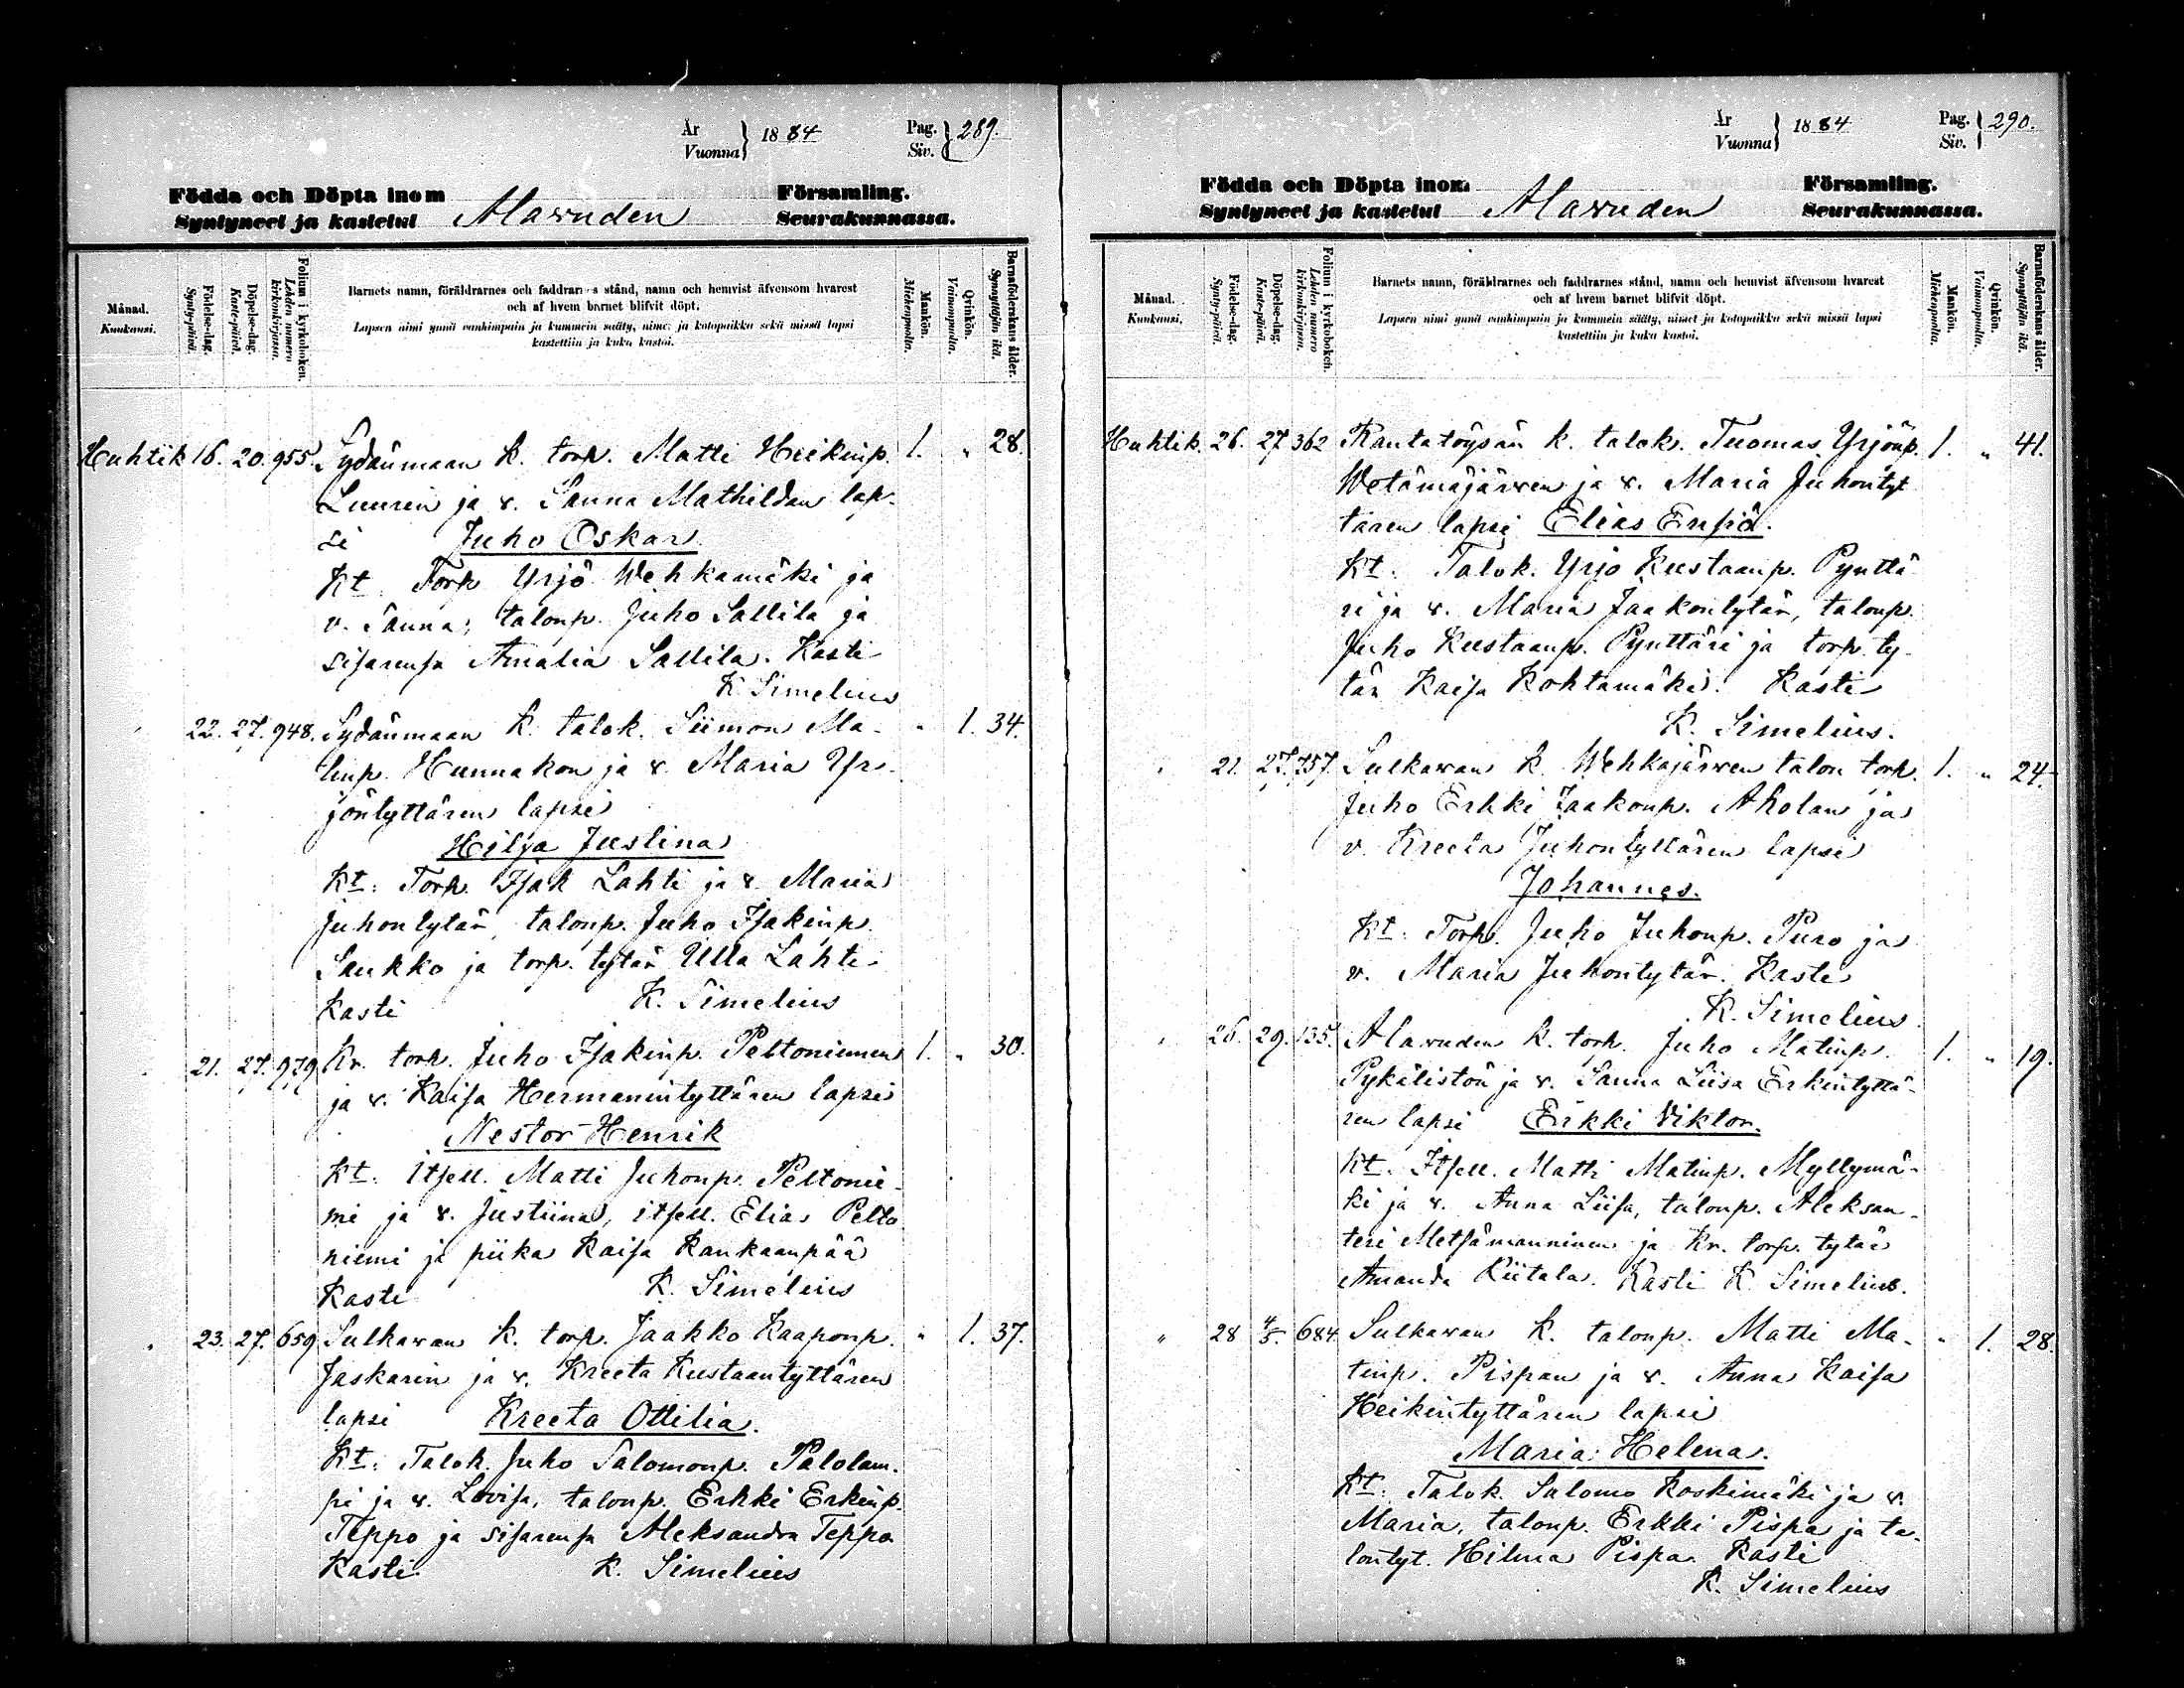 År
Vuonna } 1884 Pag.
Siv. } 289.
Födda och Döpta inom Alavuden Församling.
Syntyneet ja kastetut Seurakunnassa.
Månad.
Kuukausi.
Födelse-dag.
Synty-päivä.
Döpelse-dag.
Kaste-päivä.
Folium i kyrkoboken.
Lehden numero kirkonkirjassa.
Barnets namn, föräldrarnes och faddrarnes stånd, namn och hemvist äfvensom hvarest
och af hvem barnet blifvit döpt.
Lapsen nimi ynnä vanhimpain ja kummein sääty, nimet ja kotopaikka sekä missä lapsi
kastettiin ja kuka kastoi.
Mankön.
Miehenpuolta.
Qvinkön.
Vaimonpuolta.
Barnaföderskans ålder.
Synnyttäjän ikä.
Huhtik 16. 20. 955. Sydänmaan k. torp. Matti Heikinp. 1. " 28.
Luurin ja v. Sanna Mathildan lap-
si Juho Oskar
Kt. Torp Yrjö Wehkamäki ja
v. Sanna; talonp. Juho Sallila ja
sisarensa Amalia Sallila. Kasti
K. Simelius
" 22. 27. 948. Sydänmaan k. talok. Siimon Ma- " 1. 34.
tinp. Hunnakon ja v. Maria Yr-
jöntyttären lapsi
Hilja Justina
Kt: Torp. Isak Lahti ja v. Maria
Juhontytär, talonp. Juho Isakinp.
Saukko ja torp. tytär Ulla Lahti
Kasti K. Simelius
" 21. 27. 979 Kr. torp. Juho Isakinp. Peltoniemen 1. " 30.
ja v. Kaisa Hermanintyttären lapsi
Nestor Henrik
Kt. itsell. Matti Juhonp. Peltonie-
mi ja v. Justiina, itsell. Elias Pelto
niemi ja piika Kaisa Kankaanpää
Kasti K. Simelius
" 23. 27. 659 Sulkavan k. torp. Jaakko Kaaponp. " 1. 37.
Jaskarin ja v. Kreeta Kustaantyttären
lapsi Kreeta Ottilia.
Kt: Talok. Juho Salomonp. Palolam-
pi ja v. Lovisa, talonp. Erkki Erkinp.
Teppo ja sisarensa Aleksandra Teppo
Kasti K. Simelius
År
Vuonna } 1884 Pag.
Siv. } 290.
Födda och Döpta inom Alavuden Församling.
Syntyneet ja kastetut Seurakunnassa.
Månad.
Kuukausi.
Födelse-dag.
Synty-päivä.
Döpelse-dag.
Kaste-päivä.
Folium i kyrkoboken.
Lehden numero kirkonkirjassa.
Barnets namn, föräldrarnes och faddrarnes stånd, namn och hemvist äfvensom hvarest
och af hvem barnet blifvit döpt.
Lapsen nimi ynnä vanhimpain ja kummein sääty, nimet ja kotopaikka sekä missä lapsi
kastettiin ja kuka kastoi.
Mankön.
Miehenpuolta.
Qvinkön.
Vaimonpuolta.
Barnaföderskans ålder.
Synnyttäjän ikä.
Huhtik. 26. 27. 362 Rantatöysän k. talok. Tuomas Yrjönp. 1. " 41.
Wetämäjärven ja v. Maria Juhontyt
tären lapsi Elias Ensio.
Kt. Talok. Yrjö Kustaanp. Pynttä
ri ja v. Maria Jaakontytär, talonp.
Juho Kustaanp. Pynttäri ja torp. ty-
tär Kaisa Kohtamäki. Kasti
K. Simelius.
" 21. 27. 757. Sulkavan k. Wehkajärven talon torp. 1. " 24.
Juho Erkki Jaakonp. Aholan ja
v. Kreeta Juhontyttären lapsi
Johannes.
Kt: Torp. Juho Juhonp. Puro ja
v. Maria Juhontytär. Kasti
K. Simelius
" 26. 29. 135. Alavuden k. torp. Juho Matinp. 1. " 19.
Pykälistön ja v. Sanna Liisa Erkintyttä-
ren lapsi Erkki Viktor.
Kt. Itsell. Matti Matinp. Myllymä-
ki ja v. Anna Liisa, talonp. Aleksan-
teri Metsämanninen ja Kr. torp. tytär
Amanda Kiitala. Kasti K. Simelius.
" 28 4/5. 684. Sulkavan k. talonp. Matti Ma- " 1. 28.
tinp. Pispan ja v. Anna Kaisa
Heikintyttären lapsi
Maria Helena.
Kt: Talok. Salomo Koskimäki ja v.
Maria, talonp. Erkki Pispa ja ta-
lontyt. Hilma Pispa. Kasti
K. Simelius